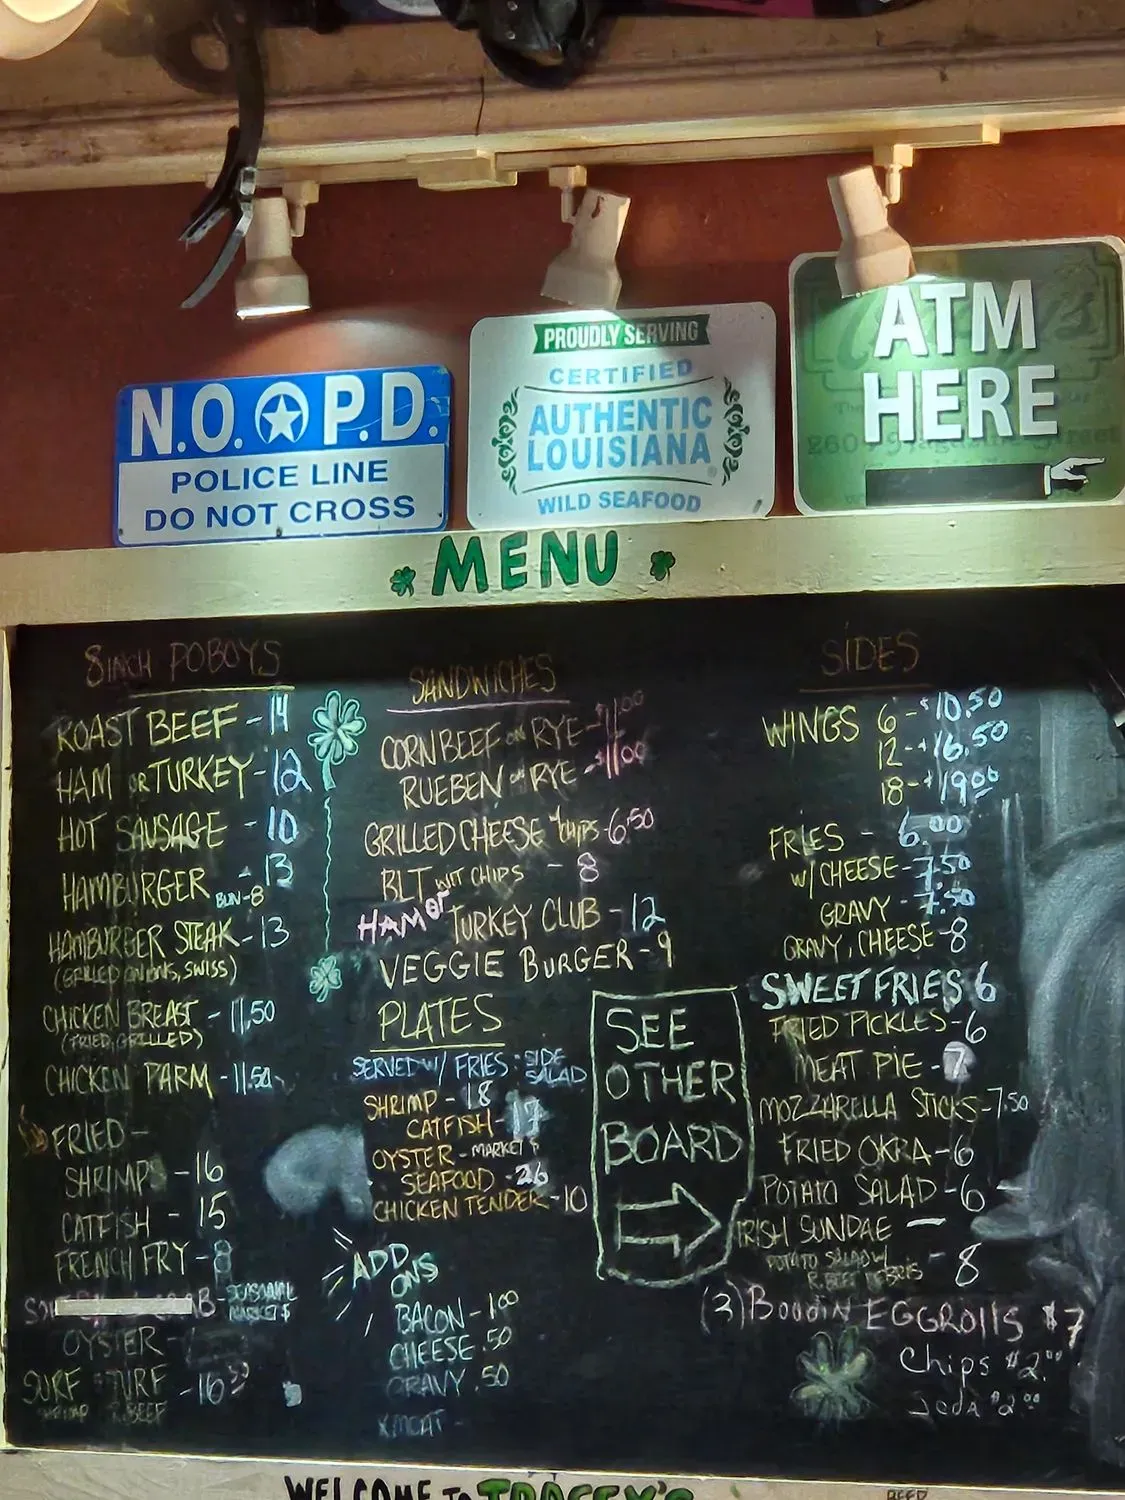 N.O. P.D.
POLICE LINE
DO NOT CROSS
PROUDLY SERVING
CERTIFIED
AUTHENTIC
LOUISIANA
WILD SEAFOOD
ATM
HERE
MENU
8 INCH POBOYS
ROAST BEEF - 14
HAM OR TURKEY - 12
HOT SAUSAGE - 10
HAMBURGER - 13
BUN - 8
HAMBURGER STEAK - 13
(GRILLED ONIONS, SWISS)
CHICKEN BREAST - 11.50
(FRIED, GRILLED)
CHICKEN PARM - 11.50
FRIED -
SHRIMP - 16
CATFISH - 15
FRENCH FRY - 8
SEASONAL
MARKET $
OYSTER -
SURF TURF - 16.50
SHRIMP R. BEEF
SANDWICHES
CORN BEEF ON RYE - 11.00
RUEBEN ON RYE - 11.00
GRILLED CHEESE CHIPS - 6.50
BLT WIT CHIPS - 8
HAM OR TURKEY CLUB - 12
VEGGIE BURGER - 9
PLATES
SERVED W/ FRIES SIDE
SALAD
SHRIMP - 18
CATFISH - 17
OYSTER - MARKET $
SEAFOOD - 26
CHICKEN TENDER - 10
ADD
ONS
BACON - 1.00
CHEESE .50
GRAVY .50
X MEAT -
SEE
OTHER
BOARD
SIDES
WINGS 6 - $10.50
12 - $16.50
18 - $19.00
FRIES - 6.00
W/ CHEESE - 7.50
GRAVY - 7.50
GRAVY, CHEESE - 8
SWEET FRIES 6
FRIED PICKLES - 6
MEAT PIE - 7
MOZZARELLA STICKS - 7.50
FRIED OKRA - 6
POTATO SALAD - 6
IRISH SUNDAE -
POTATO SALAD W/
R. BEEF DEBRIS - 8
(3) Boudin EGGROLLS $7
Chips $2.00
Soda $2.00
WELCOME TO TRACEY'S